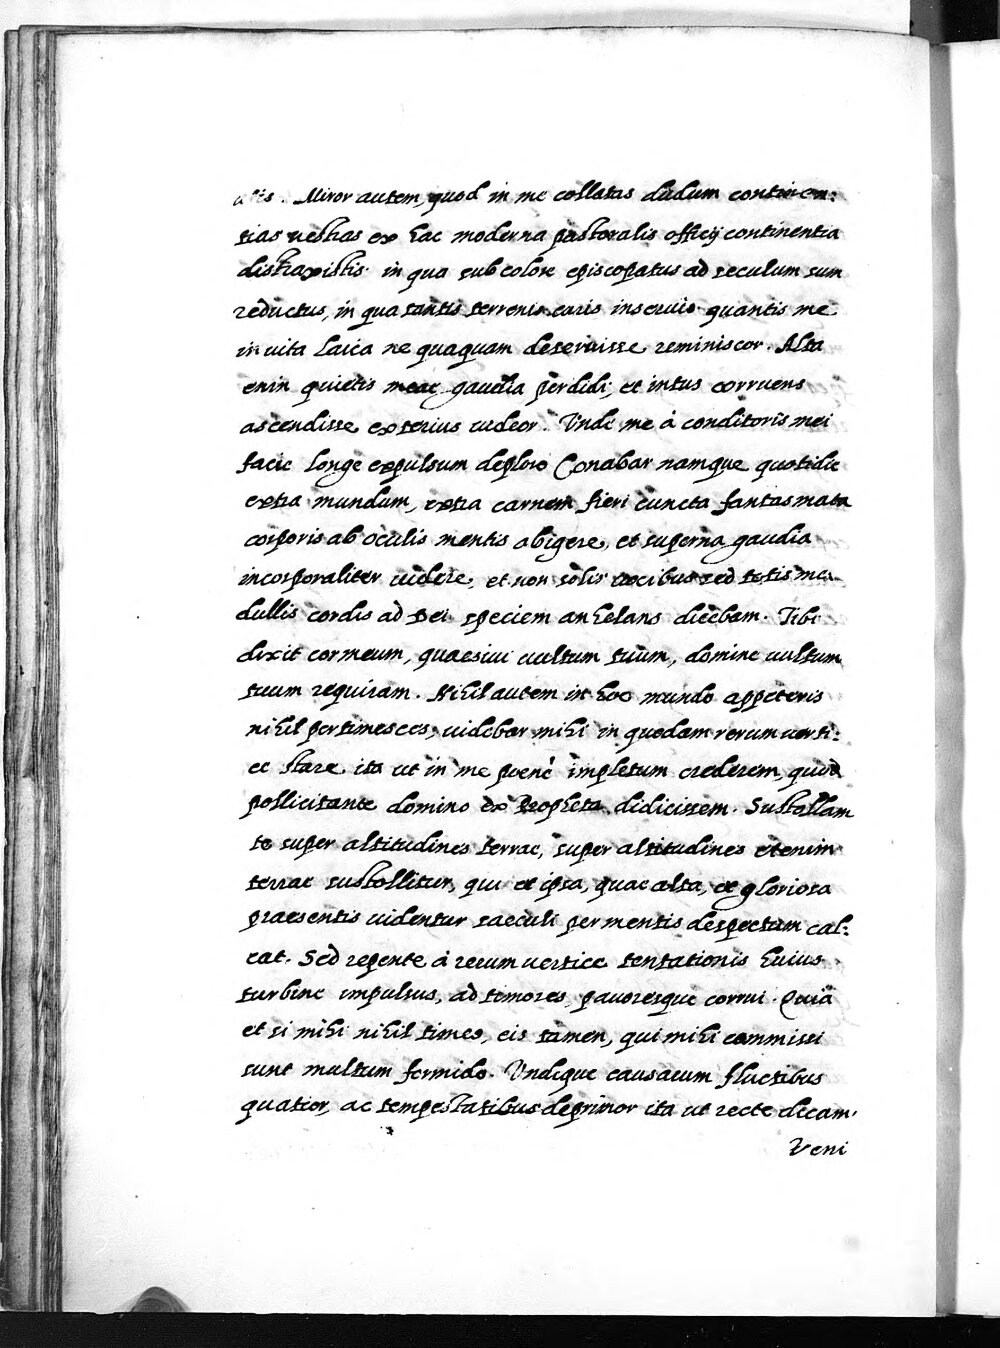 alis. Miror autem, quod in me collatas dudum continen:
tias vestras ex hac moderna pastoralis officij continentia
distraxistis. in qua sub colore episcopatus ad seculum sum
reductus, in qua tantis terrenis curis inservio quantis me
in vita laica ne quaquam deservisse reminiscor. Alta
enin quietis meae gaudia perdidi, et intus corruens
ascendisse exterius videor. Unde me à conditoris mei
facie longe expulsum deploro Conabar namque quotidie
extra mundum, extra carnem fieri cuncta fantasmata
corporis ab oculis mentis abigere, et superna gaudia
incorporaliter videre, et non solis vocibus sed totis me
dullis cordis ad Dei speciem anhelans dicebam. Tibi
dixit cor meum, quaesivi vultum tuum, domine vultum
tuum requiram. Nihil autem in hoc mundo appeteris
nihil pertimesces, videbar mihi in quodam rerum verti:
ce stare ita ut in me poenè impletum crederem, quod
pollicitante domino ex Propheta didicissem. Sustollam
te super altitudines terrae, super altitudines etenim
terrae sustollitur, qui et ipsa, quae alta, et gloriosa
praesentis videntur saeculi per mentis despectum cal:
cat. Sed repente à rerum vertice tentationis huius
turbine impulsus, ad timores, pavoresque corrui. Quia
et si mihi nihil times, eis tamen, qui mihi commissi
sunt multum formido. Undique causarum fluctibus
quatior, ac tempestatibus deprimor ita ut recte dicam.
Veni